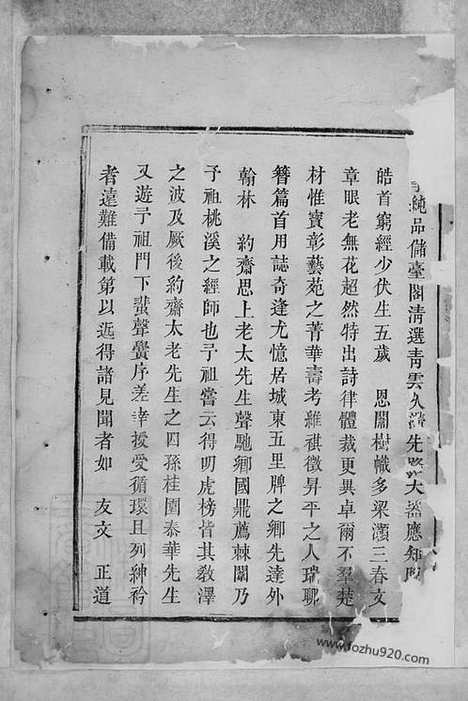 純品儲臺閣清選青雲久
先大器應知
皓首窮經少伏生五歲 恩闈樹幟多梁灝三春文
章眼老無花超然特出詩律體裁更具卓爾不羣楚
材惟寶彰藝苑之菁華壽考維祺徵昇平之人瑞聊
簪篇首用誌奇逢尤憶居城東五里牌之鄉先達外
翰林 約齋思上老太先生聲馳鄉國鼎薦棘闈乃
予祖桃溪之經師也予祖嘗云得明虎榜皆其教澤
之波及厥後約齋太老先生之四孫桂園泰華先生
又遊予祖門下蜚聲黌序差幸援爱循環且列紳衿
者遠難備載第以近得諸見聞者如 友文 正道
www.fozhu920.com